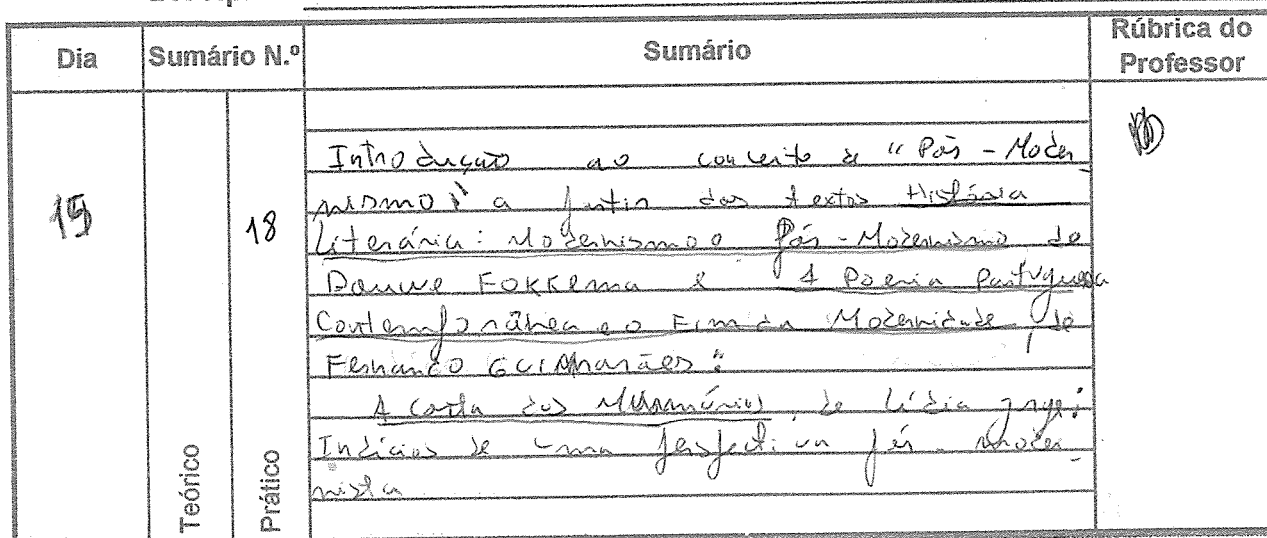 Dia Sumário N.º Sumário Rúbrica do Professor
Introdução ao conceito de "Pós-Moder
nismo" a partir dos textos História
Literária: Modernismo e Pós-Modernismo de
Douwe Fokkema e A Poesia Portuguesa
Contemporânea e o Fim da Modernidade, de
Fernando Guimarães:
15 18
A Costa dos Murmúrios, de Lídia Jorge:
Indícios de uma perspectiva pós-moder-
nista
Teórico Prático